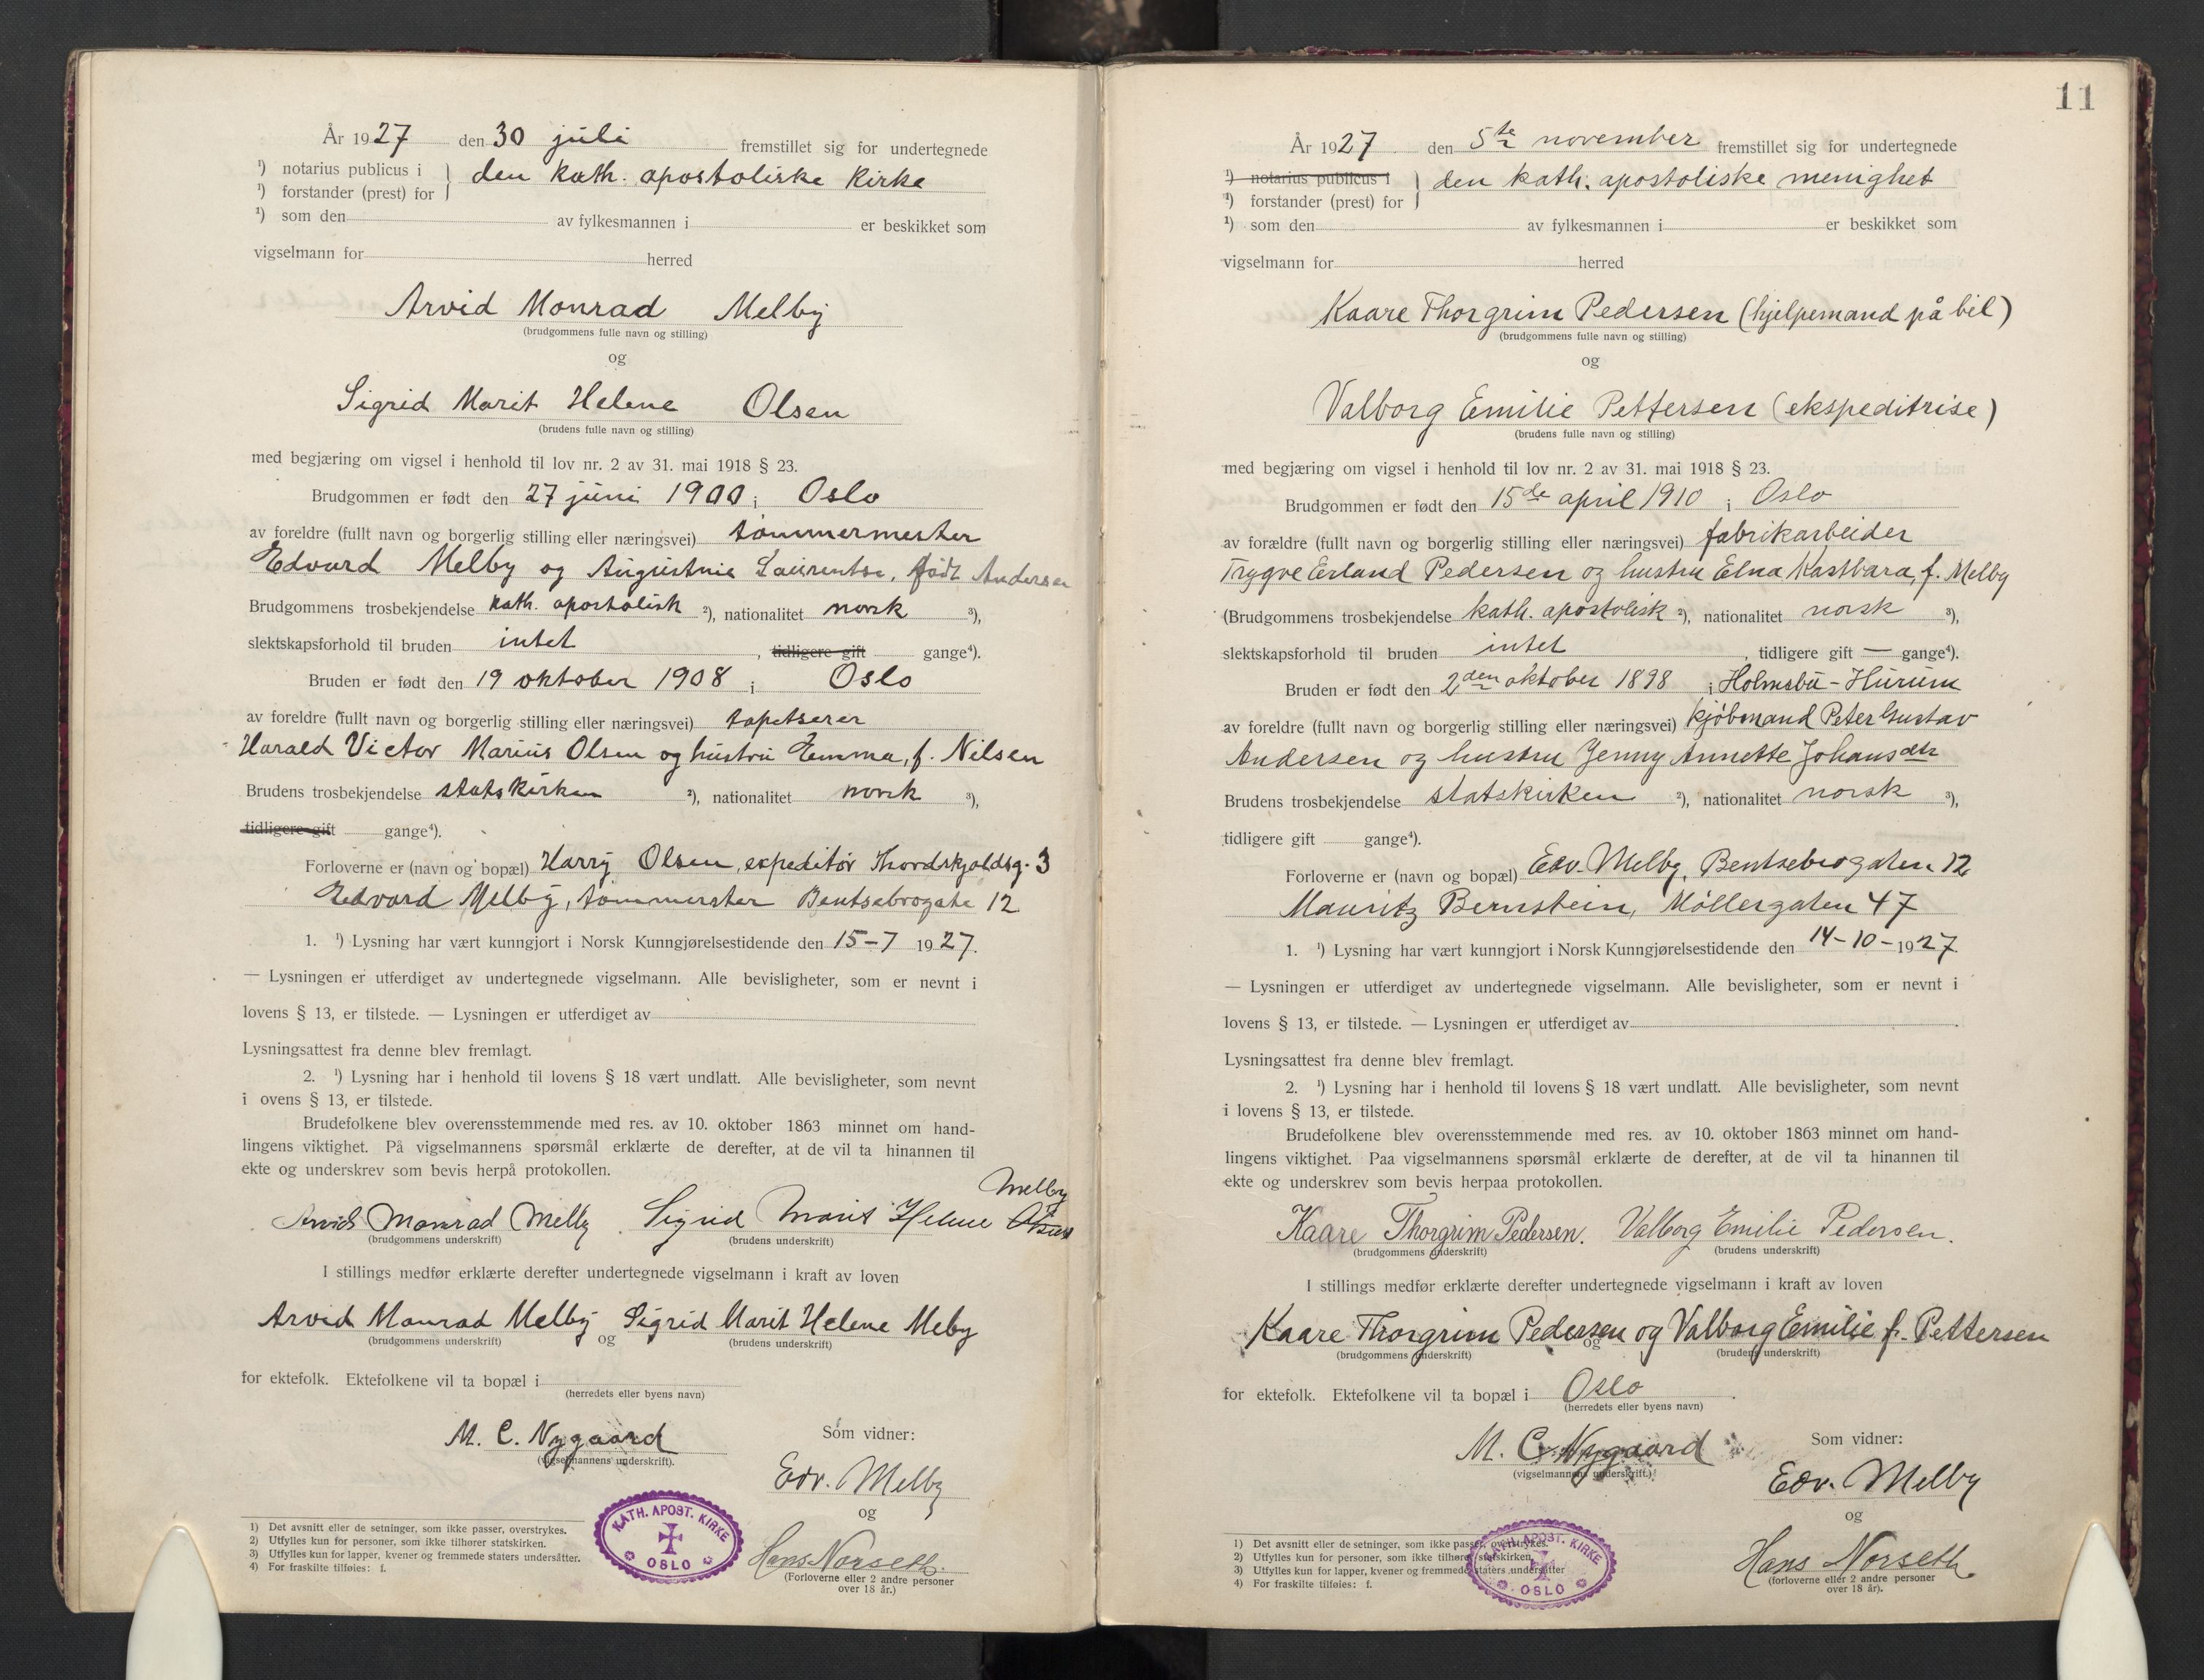 År 1927 den 30 juli fremstillet sig for undertegnede
¹) notarius publicus i
¹) forstander (prest) for } den kath. apostoliske Kirke
¹) som den av fylkesmannen i er beskikket som
vigselmann for herred
Arvid Monrad Melby
(brudgommens fulle navn og stilling)
og
Sigrid Marit Helene Olsen
(brudens fulle navn og stilling)
med begjæring om vigsel i henhold til lov nr. 2 av 31. mai 1918 § 23.
Brudgommen er født den 27 juni 1900 i Oslo
av foreldre (fullt navn og borgerlig stilling eller næringsvei) tømmermester
Edvard Melby og Augustnie Laurentse, født Andersen
Brudgommens trosbekjendelse kath. apostolisk ²), nationalitet norsk ³),
slektskapsforhold til bruden intet, tidligere gift gange⁴).
Bruden er født den 19 oktober 1908 i Oslo
av foreldre (fullt navn og borgerlig stilling eller næringsvei) tapetserer
Harald Victor Marius Olsen og hustru Emma, f. Nilsen
Brudens trosbekjendelse statskirken ²), nationalitet norsk ³),
tidligere gift gange⁴).
Forloverne er (navn og bopæl) Harry Olsen, expeditør Thordskjoldsg. 3
Edvard Melby, tømmerster Bentsebrogate 12
1. ¹) Lysning har vært kunngjort i Norsk Kunngjørelsestidende den 15-7 1927.
— Lysningen er utferdiget av undertegnede vigselmann. Alle bevisligheter, som er nevnt i
lovens § 13, er tilstede. — Lysningen er utferdiget av
Lysningsattest fra denne blev fremlagt.
2. ¹) Lysning har i henhold til lovens § 18 vært undlatt. Alle bevisligheter, som nevnt
i ovens § 13, er tilstede.
Brudefolkene blev overensstemmende med res. av 10. oktober 1863 minnet om hand-
lingens viktighet. På vigselmannens spørsmål erklærte de derefter, at de vil ta hinannen til
ekte og underskrev som bevis herpå protokollen.
Melby
Arvid Monrad Melby Sigrid Marit Helene Olsen
(brudgommens underskrift) (brudens underskrift)
I stillings medfør erklærte derefter undertegnede vigselmann i kraft av loven
Arvid Monrad Melby og Sigrid Marit Helene Meby
(brudgommens underskrift) (brudens underskrift)
for ektefolk. Ektefolkene vil ta bopæl i
(herredets eller byens navn)
M. C. Nygaard
(vigselmannens underskrift).
Som vidner:
Edv. Melby
og
Hans Norseth.
(Forloverne eller 2 andre personer
over 18 år.)
KATH. APOST. KIRKE
OSLO
1) Det avsnitt eller de setninger, som ikke passer, overstrykes.
2) Utfylles kun for personer, som ikke tilhører statskirken.
3) Utfylles kun for lapper, kvener og fremmede staters undersåtter.
4) For fraskilte tilføies: f.
11
År 1927 den 5te november fremstillet sig for undertegnede
¹) notarius publicus i
¹) forstander (prest) for } den kath. apostoliske menighet
¹) som den av fylkesmannen i er beskikket som
vigselmann for herred
Kaare Thorgrim Pedersen (hjelpemand på bil)
(brudgommens fulle navn og stilling)
og
Valborg Emilie Pettersen (ekspeditrise)
(brudens fulle navn og stilling)
med begjæring om vigsel i henhold til lov nr. 2 av 31. mai 1918 § 23.
Brudgommen er født den 15de april 1910 i Oslo
av forældre (fullt navn og borgerlig stilling eller næringsvei) fabrikarbeider
Trygve Erland Pedersen og hustru Elna Kastbara, f. Melby
(Brudgommens trosbekjendelse kath. apostolisk ²), nationalitet norsk ³),
slektskapsforhold til bruden intet, tidligere gift — gange⁴).
Bruden er født den 2den oktober 1898 i Holmsbu - Hurum
av foreldre (fullt navn og borgerlig stilling eller næringsvei) kjøbmand Peter Gustav
Andersen og hustru Jenny Annette Johansdtr
Brudens trosbekjendelse statskirken ²), nationalitet norsk ³),
tidligere gift gange⁴).
Forloverne er (navn og bopæl) Edv. Melby, Bentsebrogaten 12
Mauritz Bernstein, Møllergaten 47
1. ¹) Lysning har vært kunngjort i Norsk Kunngjørelsestidende den 14-10-1927.
— Lysningen er utferdiget av undertegnede vigselmann. Alle bevisligheter, som er nevnt i
lovens § 13, er tilstede. — Lysningen er utferdiget av
Lysningsattest fra denne blev fremlagt.
2. ¹) Lysning har i henhold til lovens § 18 vært undlatt. Alle bevisligheter, som nevnt
i lovens § 13, er tilstede.
Brudefolkene blev overensstemmende med res. av 10. oktober 1863 minnet om hand-
lingens viktighet. Paa vigselmannens spørsmål erklærte de derefter, at de vil ta hinannen til
ekte og underskrev som bevis herpaa protokollen.
Kaare Thorgrim Pedersen. Valborg Emilie Pedersen.
(brudgommens underskrift) (brudens underskrift)
I stillings medfør erklærte derefter undertegnede vigselmann i kraft av loven
Kaare Thorgrim Pedersen og Valborg Emilie f. Pettersen
(brudgommens underskrift) og (brudens underskrift)
for ektefolk. Ektefolkene vil ta bopæl i Oslo
(herredets eller byens navn)
M. C. Nygaard
(vigselmannens underskrift)
Som vidner:
Edv. Melby
og
Hans Norseth
(forloverne eller 2 andre personer
over 18 år).
KATH. APOST. KIRKE
OSLO
1) Det avsnitt eller de setninger, som ikke passer, overstrykes.
2) Utfylles kun for personer, som ikke tilhører statskirken.
3) Utfylles kun for lapper, kvener og fremmede staters undersåtter
4) For fraskilte tilføies: f.